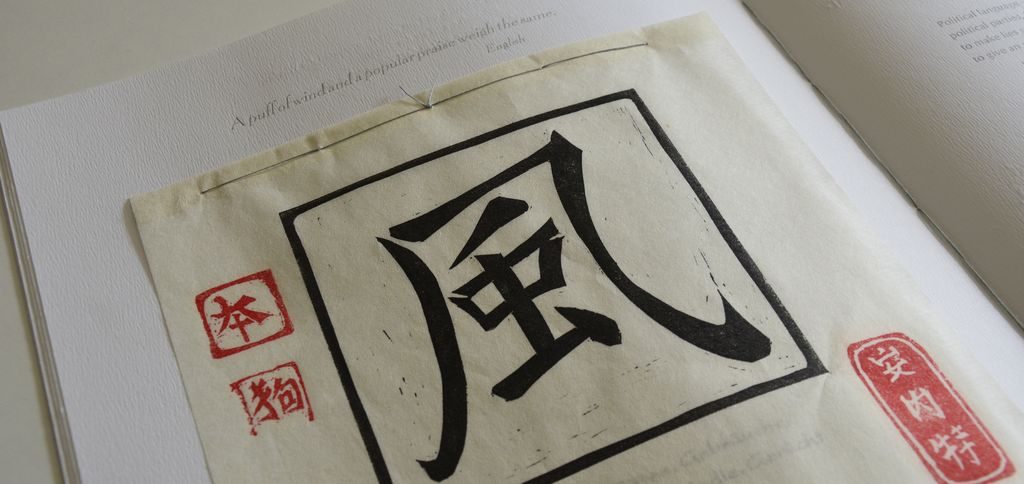 A puff of wind and a popular praise weigh the same.
English
風
本
狗
安内特
Political language,
political parties
to make lies
to give an